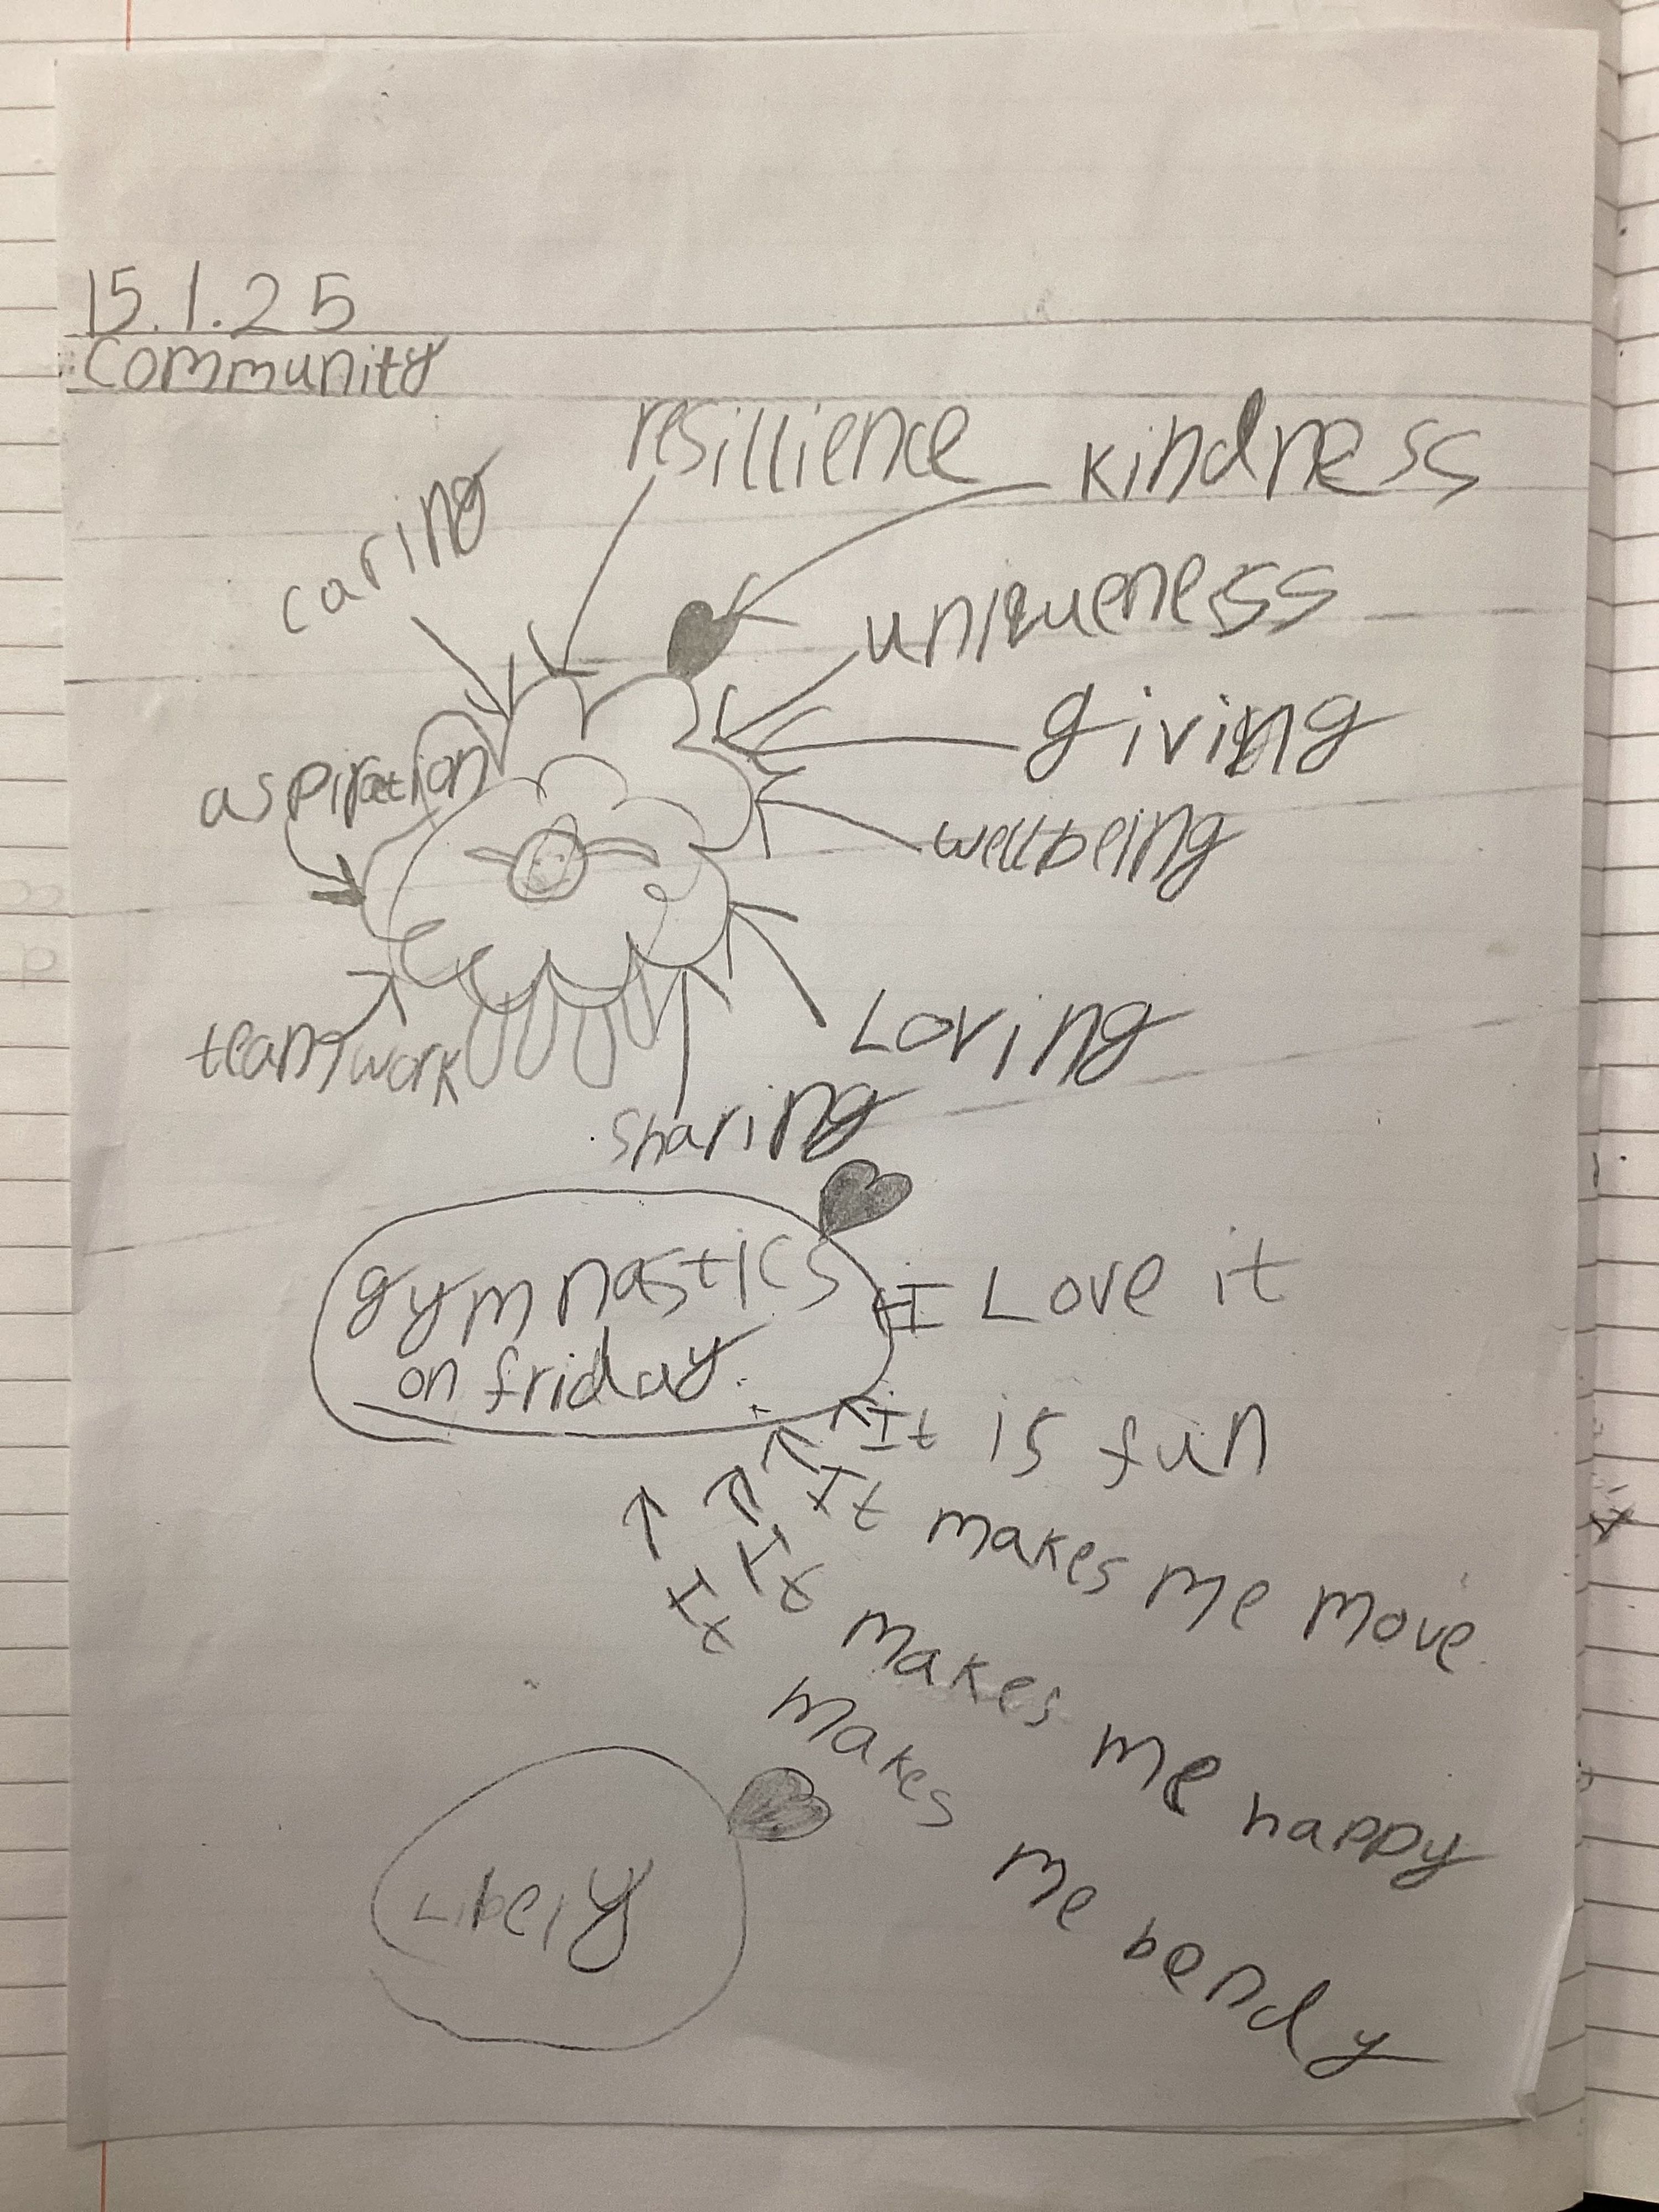 15.1.25
Community
resillience
kindness
caring
uniqueness
giving
aspiration
wellbeing
Loving
teamwork
sharing
gymnastics
on friday.
I Love it
It is fun
It makes me move
It makes me happy
It makes me bendy